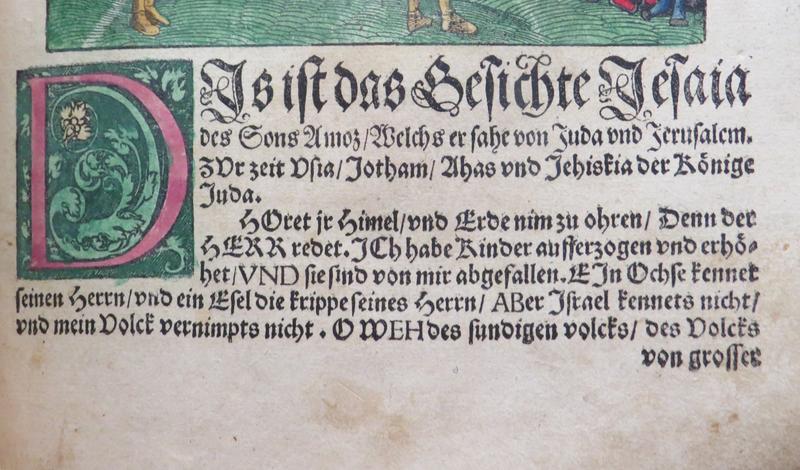 DJs ist das Gesichte Jesaia
des Sons Amoz/Welchs er sahe von Juda vnd Jerusalem.
zVr zeit Vsia/ Jotham/ Ahas vnd Jehiskia der Könige
Juda.
HOret jr Himel/vnd Erde nim zu ohren/ Denn der
HERR redet. JCh habe Kinder aufferzogen vnd erhö-
het/VND sie sind von mir abgefallen. EJn Ochse kennet
seinen Herrn/vnd ein Esel die krippe seines Herrn/ ABer Jsrael kennets nicht/
vnd mein Volck vernimpts nicht. O WEH des sundigen volcks/ des Volcks
von grosser